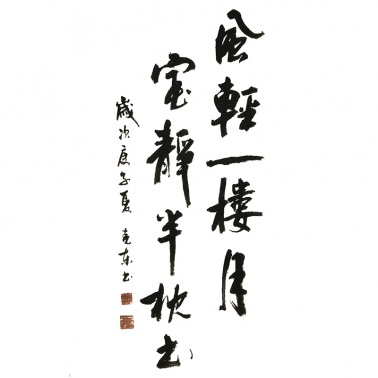 風輕一樓月
室靜半枕書
歲次庚子夏 克東書